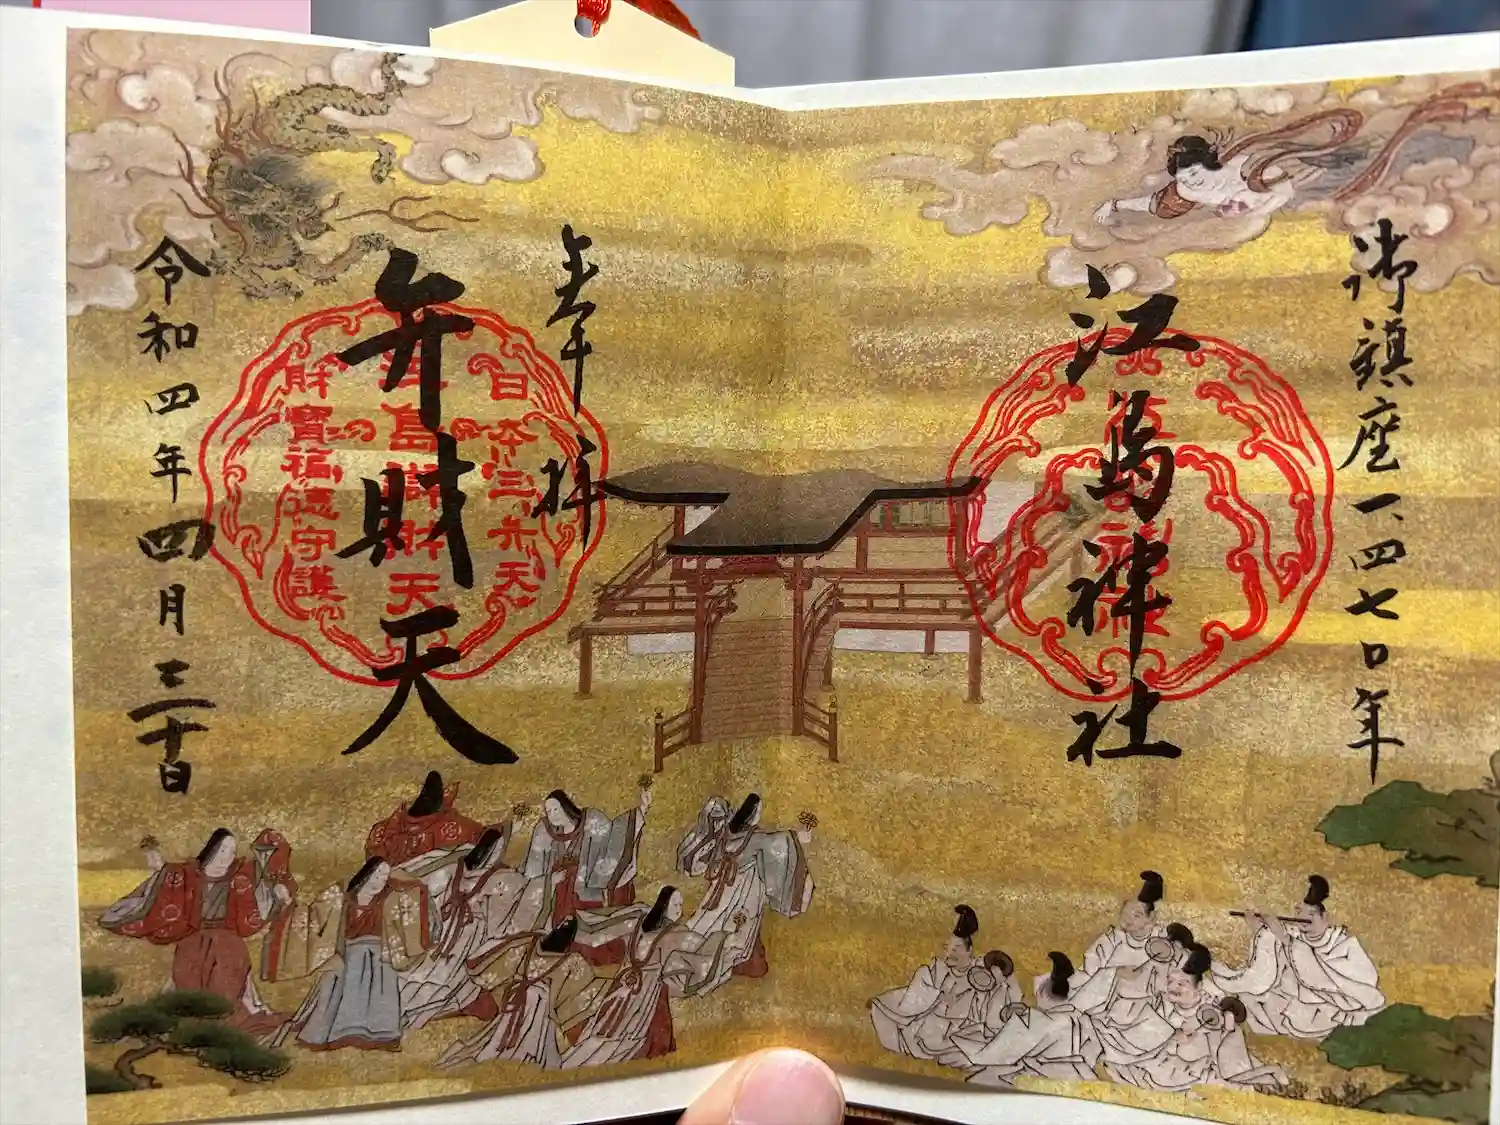 御鎮座一、四七〇年
江島神社
奉拝
弁財天
日本三弁天
江島辨財天
財寶福徳守護
令和四年四月三十日